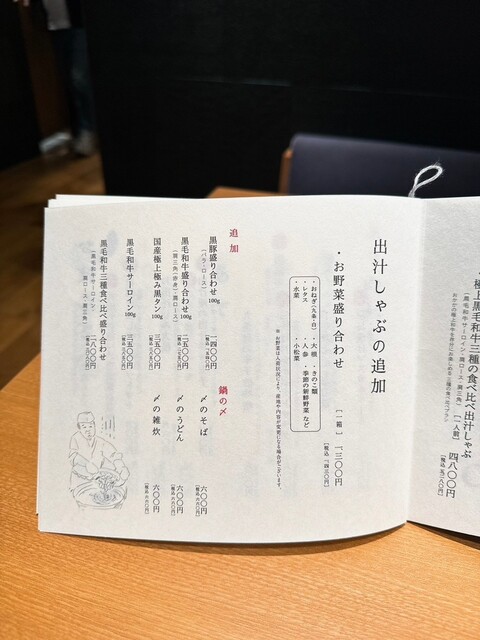 極上黒毛和牛三種の食べ比べ出汁しゃぶ
(黒毛和牛サーロイン・肩ロース・肩三角) [一人前]
四八〇〇円
[税込 五二八〇円]
出汁しゃぶの追加
・お野菜盛り合わせ [一箱] 一三〇〇円
[税込 一四三〇円]
・おねぎ(九条・白) ・大根 ・きのこ類
・レタス ・人参 ・季節の新鮮野菜 など
・水菜 ・小松菜
※お野菜は入荷状況により、産地や内容が変更になる場合がございます。
追加
黒豚盛り合わせ 100g 一四〇〇円
(バラ・ロース) [税込 一五四〇円]
黒毛和牛盛り合わせ 100g 二五〇〇円
(肩三角(赤身)・肩ロース) [税込 二七五〇円]
国産極上極み黒タン 100g 三五〇〇円
[税込 三八五〇円]
黒毛和牛サーロイン 100g 三五〇〇円
[税込 三八五〇円]
黒毛和牛三種食べ比べ盛り合わせ 一八〇〇円
(黒毛和牛サーロイン・肩ロース・肩三角)
鍋の〆
〆のそば 六〇〇円
[税込 六六〇円]
〆のうどん 六〇〇円
[税込 六六〇円]
〆の雑炊 六〇〇円
[税込 六六〇円]